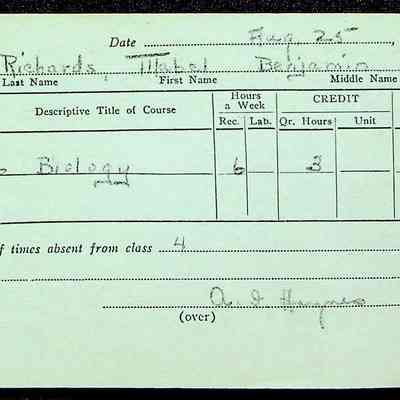 Date Aug 25,
Richards, Mabel Benjamin
Last Name First Name Middle Name
Hours a Week CREDIT
Descriptive Title of Course Rec. Lab. Qr. Hours Unit
Biology 6 3
f times absent from class 4
A. I. Haynes
(over)